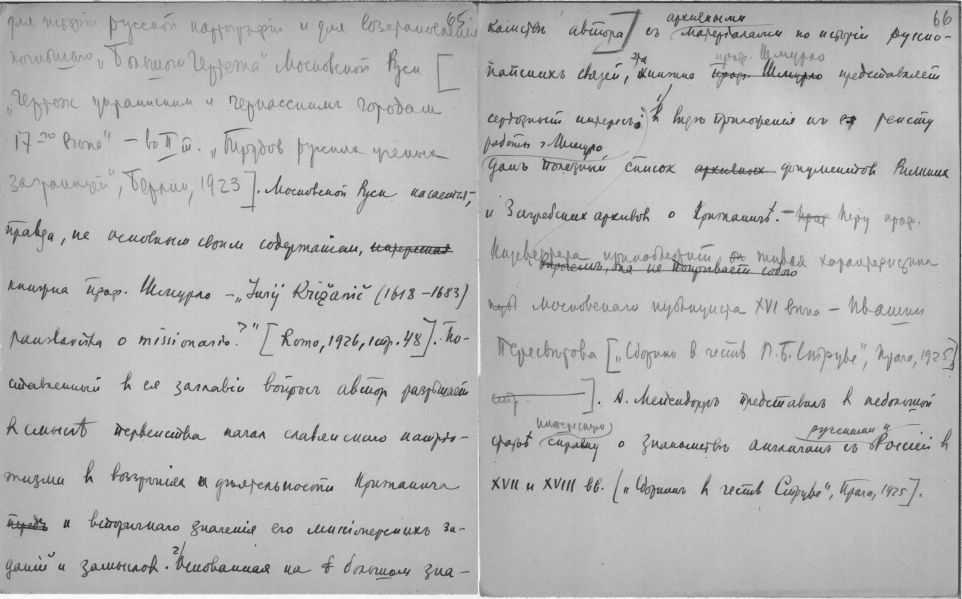 65
для истории русской картографии и для возстановления
погибшаго „Большого Чертежа“ Московской Руси [
„Чертеж украинским и черкасским городам
17-го века“ – во II т. „Трудов русских ученых
заграницей“, Берлин, 1923]. Московской Руси касается,
правда, не основным своим содержанием,
книжка проф. Шмурло – „Jurij Križanič (1618–1683)
panslavista o missionario?“ [Roma, 1926, стр. 48]. По-
ставленный в ея заглавии вопрос автор разрешает
в смысле первенства начал славянского патрио-
тизма в воззрениях и деятельности Крижанича
и вторичнаго значения его миссионерских за-
даний и замыслов. 2/ Основанная на большом зна-
66
архивными
комстве автора] с материалами по истории русско-
проф. Шмурло
папских связей, эта книжка проф. Шмурло представляет
серьезный интерес; в виде приложения к ея тексту
работы г. Шмурло
дан полезный список архивных документов Римских
и Загребских архивов о Крижаниче. – Перу проф.
Кизеветтера принадлежит живая характеристика
впрочем, она не покрывает собою
московского публициста XVI века – Ивашки
Пересветова [„Сборник в честь П. Б. Струве“, Прага, 1925,
стр.]. А. Мейендорф представил в небольшой
интересную русскими и
статье справку о знакомстве англичан с Россией в
XVII и XVIII вв. („Сборник в честь Струве“, Прага, 1925].